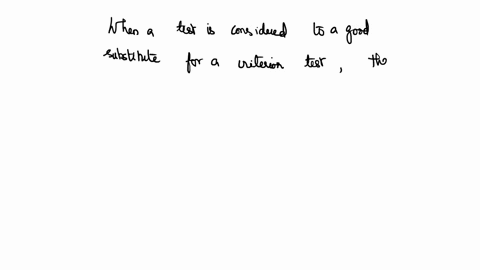 When a test is considered to a good
substitute for a criterion test, the